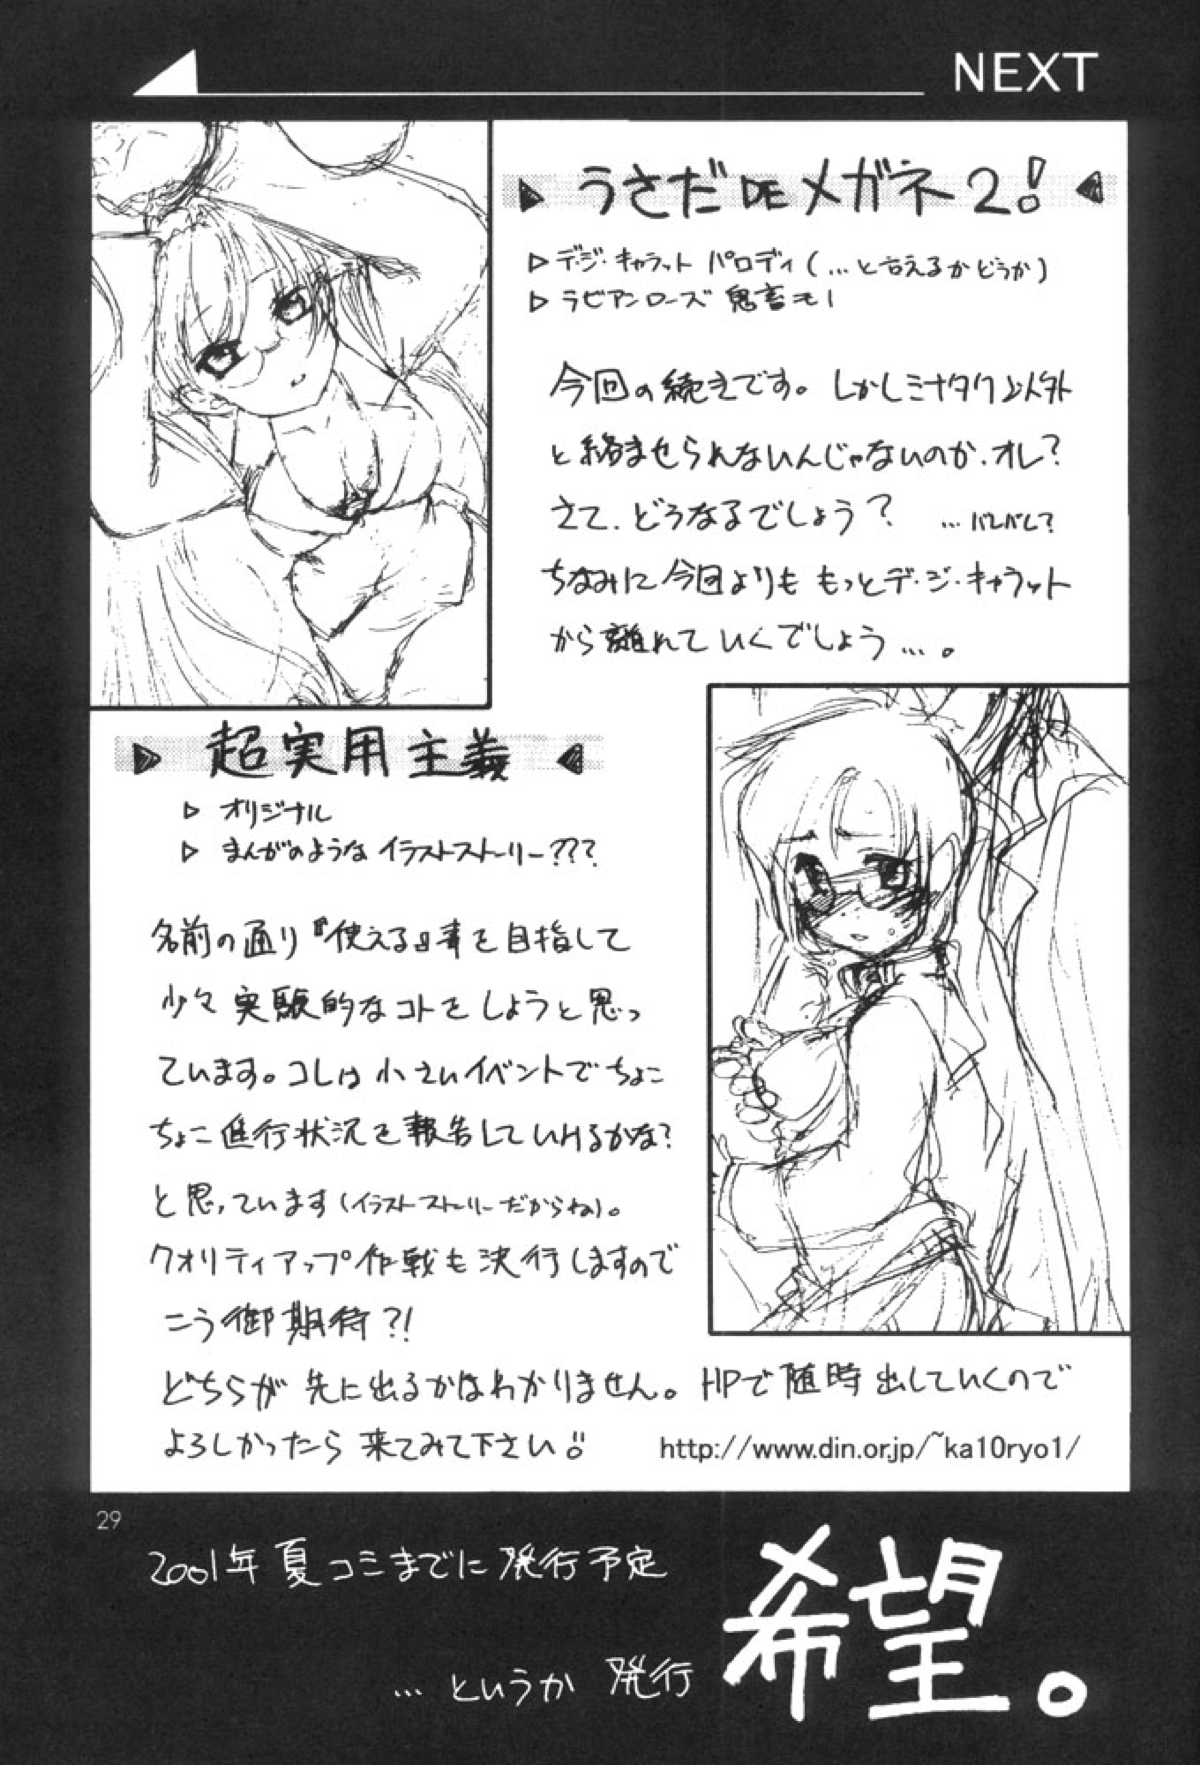 NEXT
うさだDEメガネ2!
▷ デ・ジ・キャラット パロディ(…と言えるかどうか)
▷ ラビアンローズ 鬼畜モノ
今回の続きです。しかしミナタク以外
と絡ませられないんじゃないのか、オレ?
さて、どうなるでしょう? …バレバレ?
ちなみに今回よりも もっとデ・ジ・キャラット
から離れていくでしょう…。
超実用主義
▷ オリジナル
▷ まんがのような イラストストーリー???
名前の通り『使える』事を目指して
少々実験的なコトをしようと思っ
ています。コレは小さいイベントでちょこ
ちょこ進行状況を報告していけるかな?
と思っています(イラストストーリーだからね)。
クオリティアップ作戦も決行しますので
こう御期待?!
どちらが先に出るかはわかりません。HPで随時出していくので
よろしかったら来てみて下さい!!
http://www.din.or.jp/~ka10ryo1/
29
2001年夏コミまでに発行予定
…というか 発行 希望。